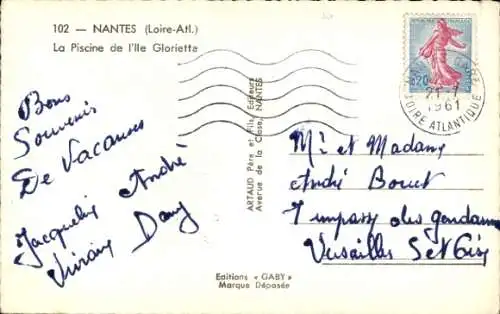 102 — NANTES (Loire-Atl.)
La Piscine de l'Ile Gloriette
Bons
Souvenir
De Vacances
Jacqueline André
Dany
ARTAUD Père et Fils Editeurs
Avenue de la Close, NANTES
Editions « GABY »
Marque Déposée
0,20
1961
LOIRE ATLANTIQUE
Mr et Madame
André Bouet
7 impasse des gendarmes
Versailles Set Oise